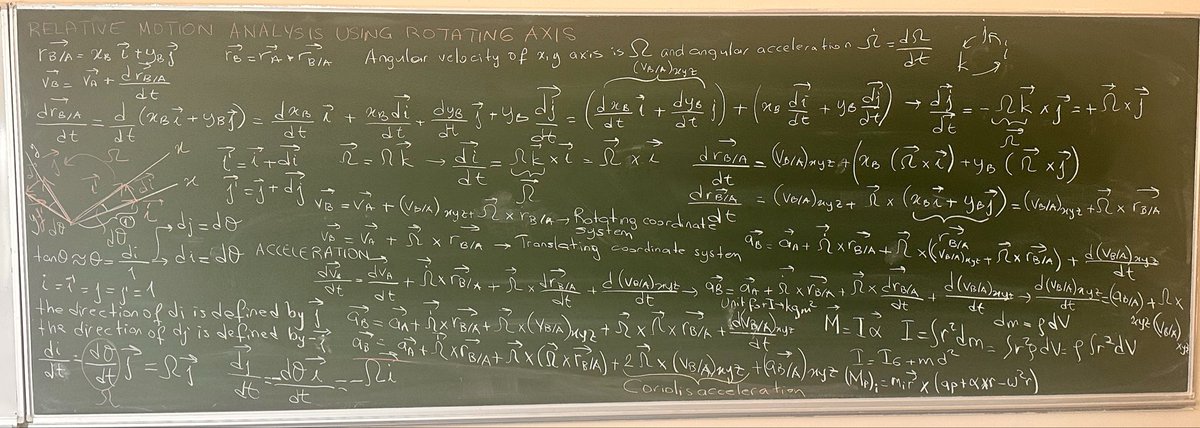 RELATIVE MOTION ANALYSIS USING ROTATING AXIS
r⃗B/A = xB i⃗ + yB j⃗   r⃗B = r⃗A + r⃗B/A   Angular velocity of x,y axis is Ω and angular acceleration Ω̇ = dΩ/dt   j i k
v⃗B = v⃗A + dr⃗B/A/dt   (vB/A)xyz
dr⃗B/A/dt = d/dt (xB i⃗ + yB j⃗) = dxB/dt i⃗ + xB di⃗/dt + dyB/dt j⃗ + yB dj⃗/dt = (dxB/dt i⃗ + dyB/dt j⃗) + (xB di⃗/dt + yB dj⃗/dt) → dj⃗/dt = -Ωk⃗ × j⃗ = +Ω⃗ × j⃗
Ω⃗
i⃗' = i⃗ + di⃗   Ω⃗ = Ωk⃗ → di⃗/dt = Ωk⃗ × i⃗ = Ω⃗ × i⃗   dr⃗B/A/dt = (vB/A)xyz + (xB (Ω⃗ × i⃗) + yB (Ω⃗ × j⃗)
j⃗' = j⃗ + dj⃗   Ω⃗   dr⃗B/A/dt = (vB/A)xyz + Ω⃗ × (xB i⃗ + yB j⃗) = (vB/A)xyz + Ω⃗ × r⃗B/A
r⃗B/A
v⃗B = v⃗A + (vB/A)xyz + Ω⃗ × r⃗B/A → Rotating coordinate system
dj = dθ   v⃗B = v⃗A + Ω⃗ × r⃗B/A → Translating coordinate system   a⃗B = a⃗A + Ω⃗̇ × r⃗B/A + Ω⃗ × ((vB/A)xyz + Ω⃗ × r⃗B/A) + d(vB/A)xyz/dt
tanθ ≈ θ = di/1 → di = dθ   ACCELERATION
dv⃗B/dt = dv⃗A/dt + Ω⃗̇ × r⃗B/A + Ω⃗ × dr⃗B/A/dt + d(vB/A)xyz/dt → a⃗B = a⃗A + Ω⃗̇ × r⃗B/A + Ω⃗ × dr⃗B/A/dt + d(vB/A)xyz/dt → d(vB/A)xyz/dt = (aB/A)xyz + Ω × (vB/A)xyz
i = i' = j = j' = 1
the direction of di is defined by j⃗   a⃗B = a⃗A + Ω⃗̇ × r⃗B/A + Ω⃗ × (vB/A)xyz + Ω⃗ × Ω⃗ × r⃗B/A + d(vB/A)xyz/dt   Unit for I → kgm²   M⃗ = Iα⃗   I = ∫r²dm = ∫r²ρdV = ρ∫r²dV   dm = ρdV
the direction of dj is defined by -i⃗   a⃗B = a⃗A + Ω⃗̇ × r⃗B/A + Ω⃗ × (Ω⃗ × r⃗B/A) + 2Ω⃗ × (vB/A)xyz + (aB/A)xyz   I = IG + md²
di/dt = dθ/dt j⃗ = Ωj⃗   dj⃗/dt = -dθ/dt i⃗ = -Ωi⃗   Coriolis acceleration   (Mp)i = mi r⃗ × (ap + α × r - ω²r)
Ω